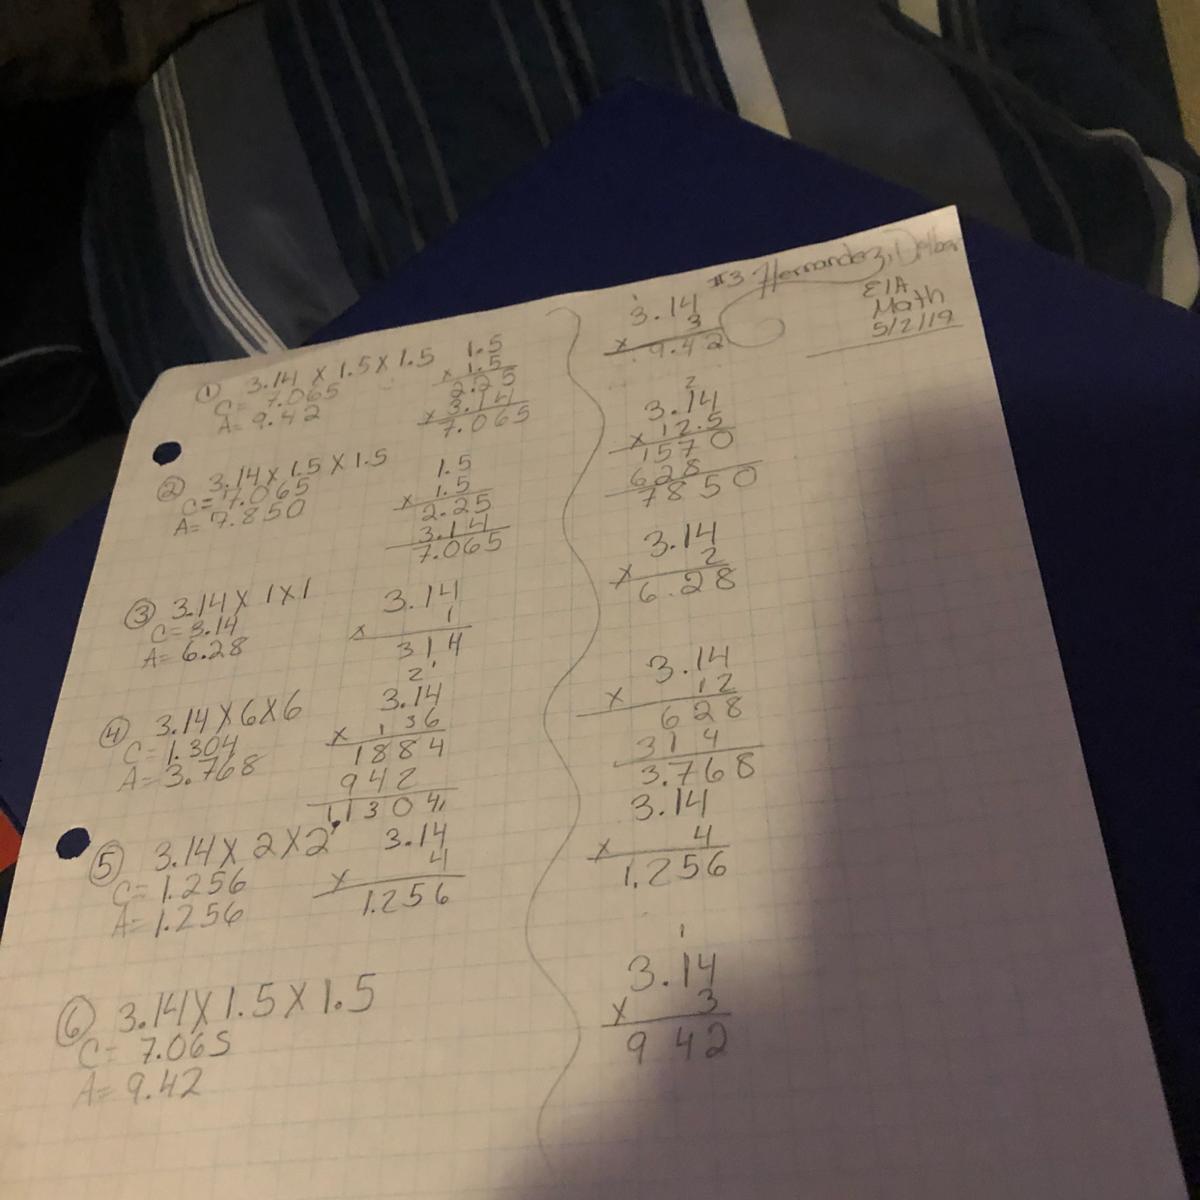 #3 Hernandez,
E/A
Math
5/2/19
① 3.14 X 1.5 X 1.5
C= 7.065
A= 9.42
1.5
x 1.5
2.25
x 3.14
7.065
② 3.14 X 1.5 X 1.5
C= 7.065
A= 7.850
1.5
x 1.5
2.25
3.14
7.065
③ 3.14 X 1 X 1
C= 3.14
A= 6.28
3.14
x 1
314
④ 3.14 X 6 X 6
C= 1.304
A= 3.768
2 1
3.14
x 1 36
1884
942
1,1304
⑤ 3.14 X 2 X 2
C= 1.256
A= 1.256
3.14
x 4
1.256
⑥ 3.14 X 1.5 X 1.5
C= 7.065
A= 9.42
1
3.14
x 3
9.42
2
3.14
x 12.5
1570
628
7850
3.14
x 2
6.28
3.14
x 12
628
314
3.768
3.14
x 4
1.256
1
3.14
x 3
9 42